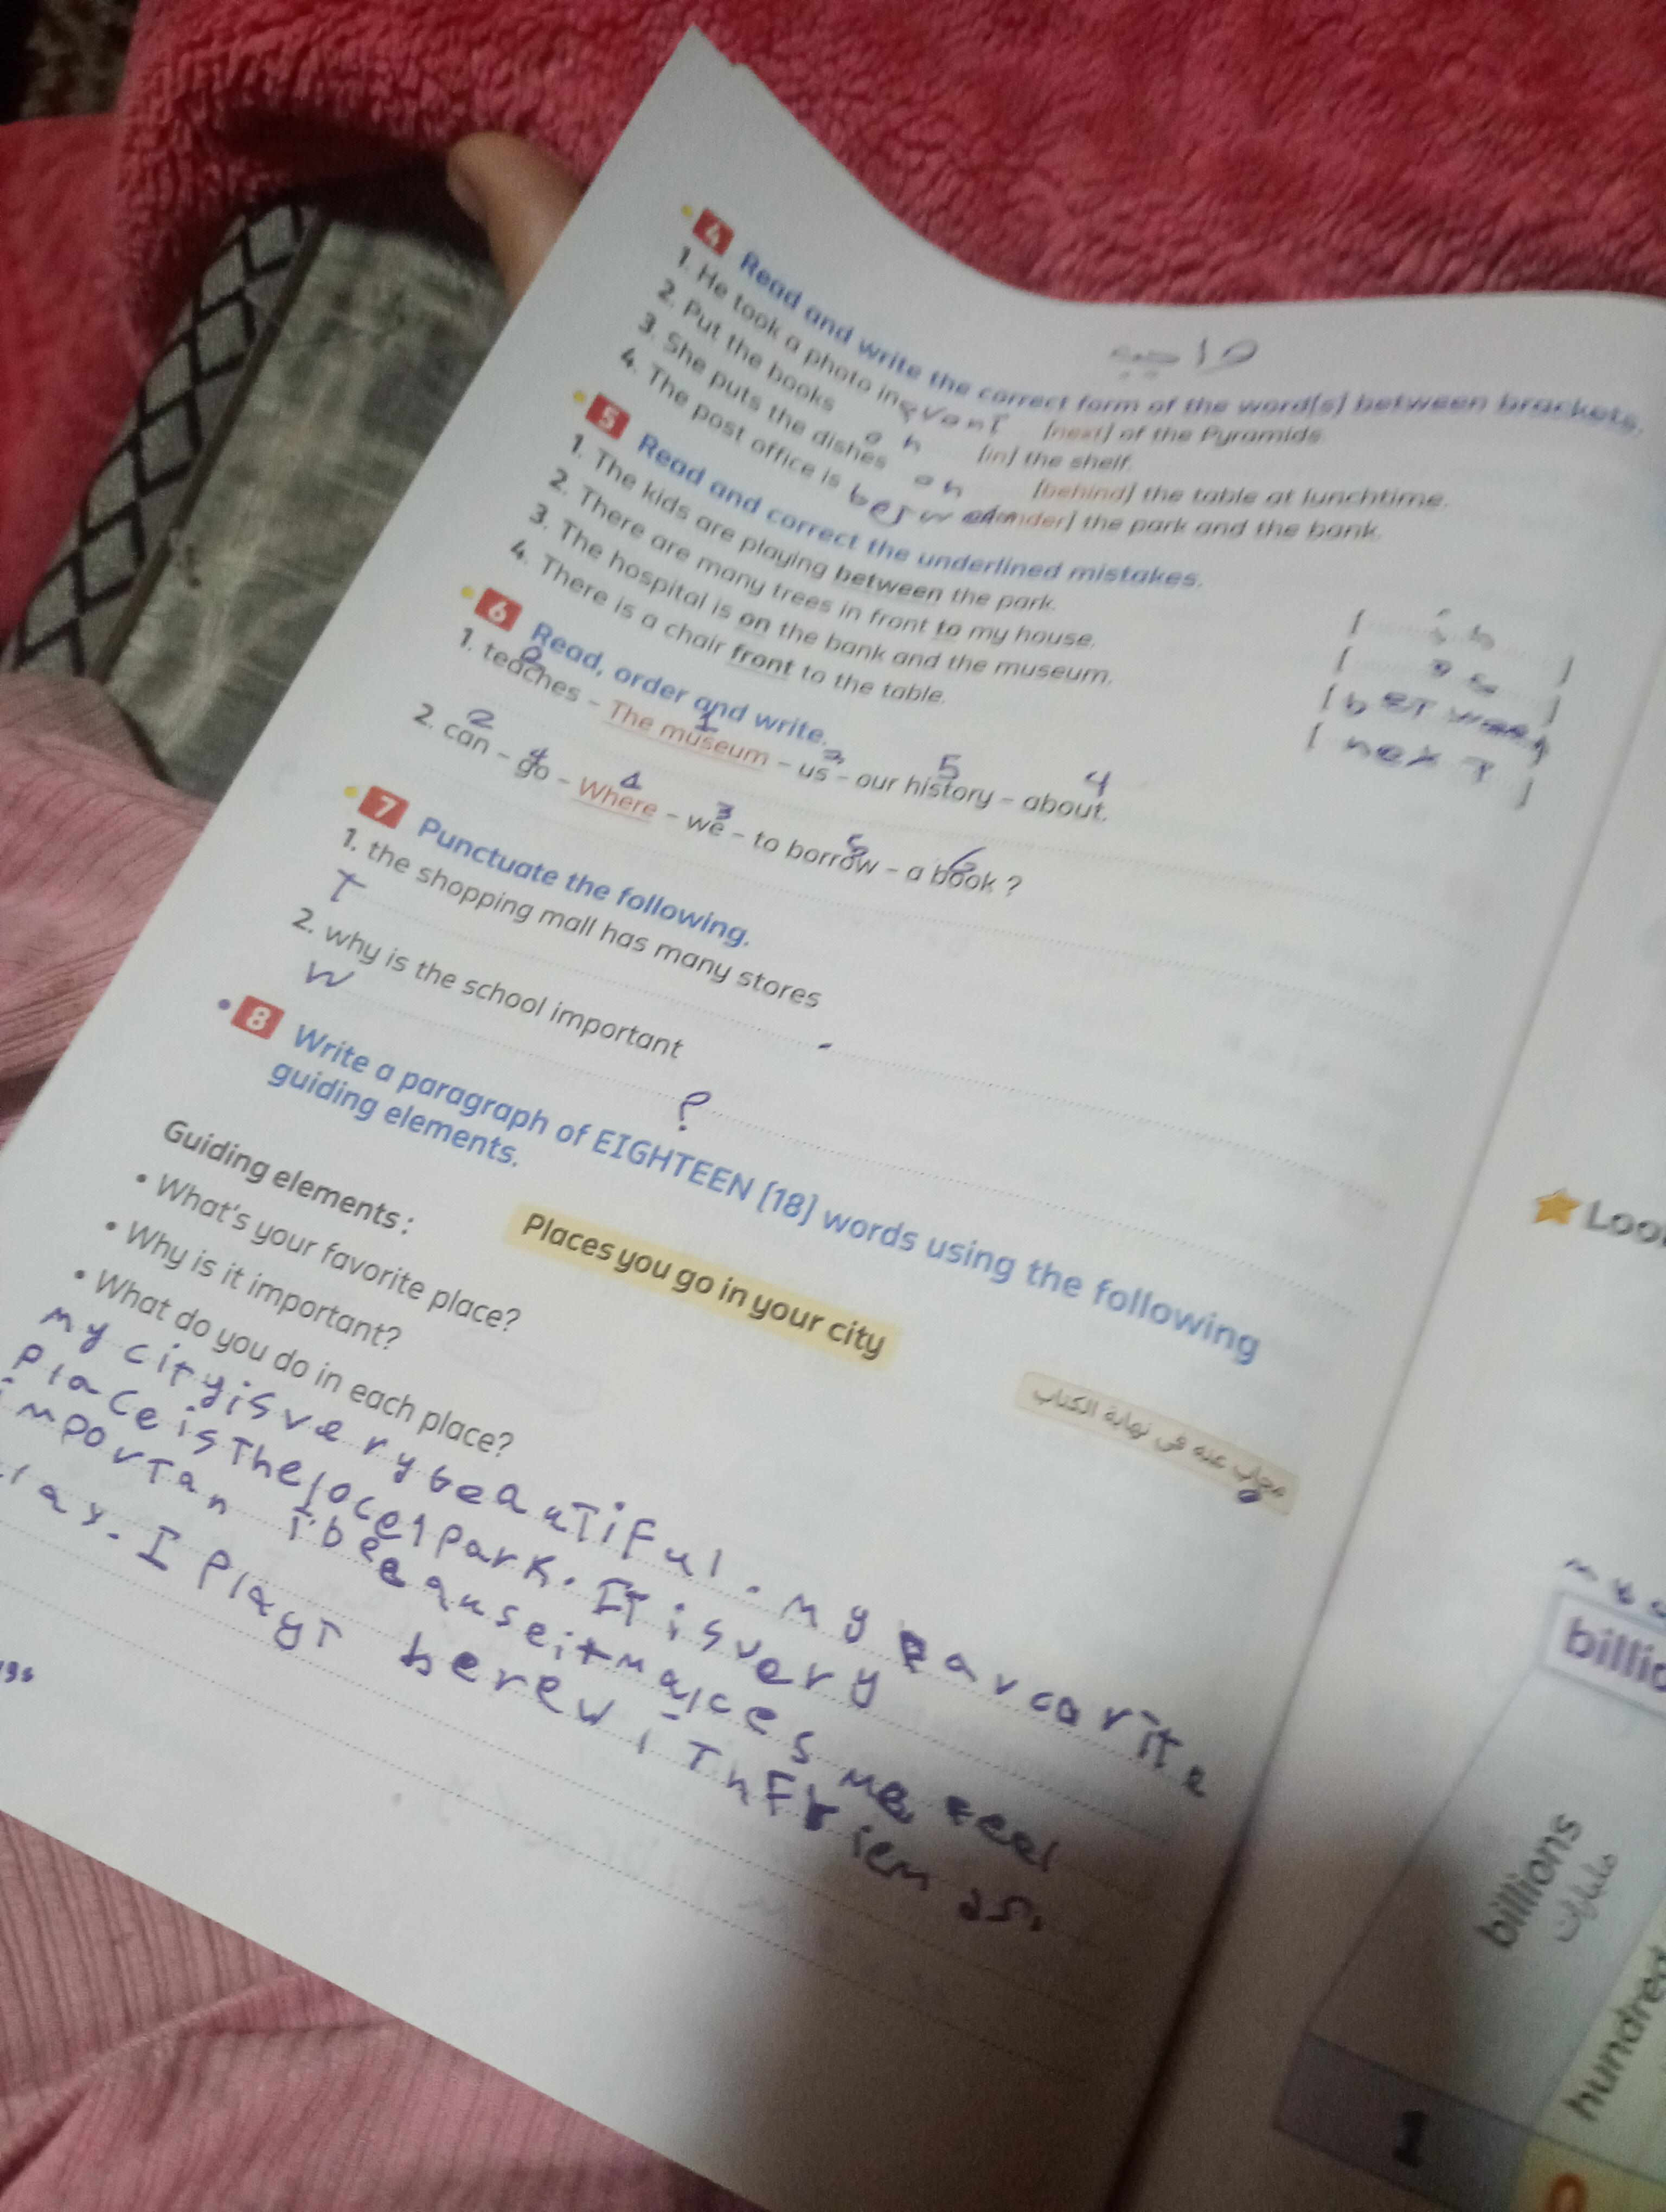 واجب
4 Read and write the correct form of the word(s) between brackets.
1. He took a photo in [next] of the Pyramids.
2. Put the books on [in] the shelf.
3. She puts the dishes on [behind] the table at lunchtime.
4. The post office is [under] the park and the bank.
5 Read and correct the underlined mistakes.
1. The kids are playing between the park. [ in ]
2. There are many trees in front to my house. [ ]
3. The hospital is on the bank and the museum. [ between ]
4. There is a chair front to the table. [ next ]
6 Read, order and write.
2 1 3 5 4
1. teaches – The museum – us – our history – about.
2 4 1 3 5 6
2. can – go – Where – we – to borrow – a book ?
7 Punctuate the following.
1. the shopping mall has many stores
T .
2. why is the school important
W ?
8 Write a paragraph of EIGHTEEN [18] words using the following
guiding elements.
Places you go in your city
مجاب عنه في نهاية الكتاب
Guiding elements :
• What's your favorite place?
• Why is it important?
• What do you do in each place?
my city is very beautiful. my
place is the locel park. It is very
importan it makes me feel
I play
Loo
billio
billions
مليارات
hundred
1
0